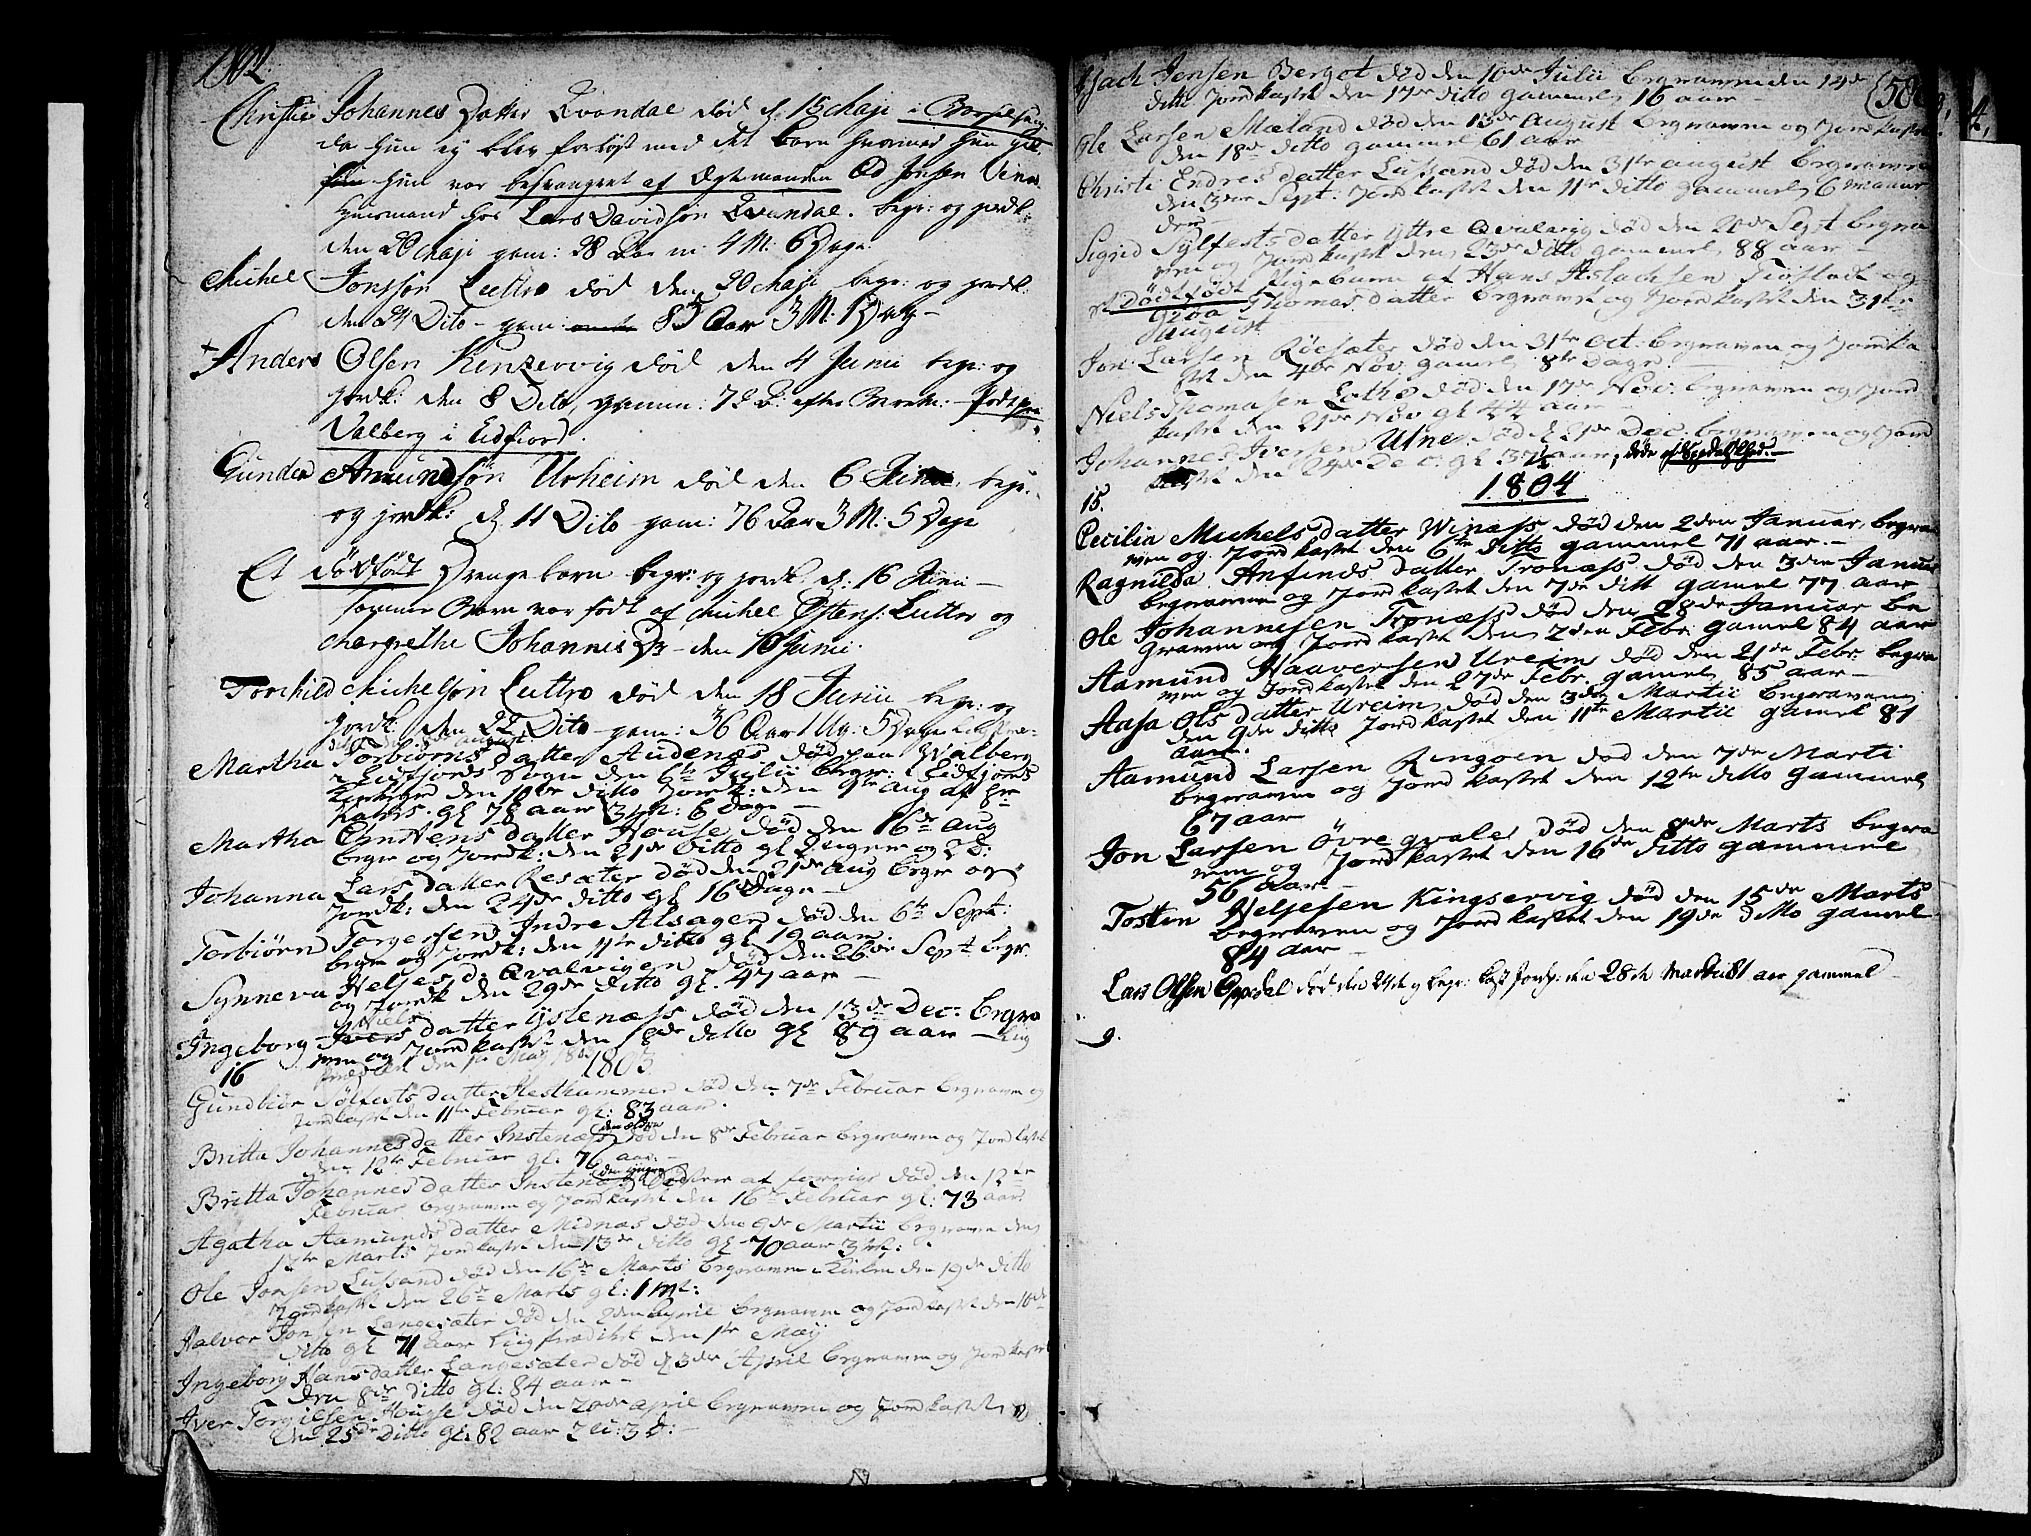 1802
Christie Johannes Datter Qvandal død d: 15 Maji i Barselseng
da hun ej blev forløst med det Barn hvormed hun gik
hun var besvangret af Ægtemanden Od Jonsen Vines
Huusmand hos Lars Davidsøn Qvandal. begr: og jordk:
den 20 Maji gam: 28 Aar m: 4 M: 6 Dage
Michel Jonssøn Luttro død den 20 Maji begr: og jordk:
den 24 Dito - gam: 85 Aar 3 M: 1 Dag -
Anders Olsen Kinzervig død den 4 Junii begr: og
jordk: den 8 Dito, gamm:
Valberg i Eidfiord.
Gunder Amundsøn Urheim død den 6 Junii, begr:
og jordk: d: 11 Dito gam: 76 Aar 3 M: 5 Dage
Et dødfødt Drengebarn begr: og jordk: d: 16 Junii -
samme Barn var født af Michel Østens: Luttro og
Margrethe Johannis Dr - den 10 Junii.
Torchild Michelsøn Luttro død den 18 Junii begr: og
jordk: den 22 Dito - gam: 36 Aar 1 Ug: 5 Dage
Martha Torbiørns datter Audenæs død paa Walberg
i Eidfjords Sogn den 6te Julii begr: i Eidfjords
Kirkegrd den 10de ditto Jordk: den 9de Aug af Hr
gl 78 aar 3 M: 6 Dage -
Martha Christens datter House død den 16de Aug
begr og Jordk: den 21de ditto gl 2 uger og 2 D:
Johanna Lars datter Resæter død den 21de Aug begr og
Jordk: den 24de ditto gl 16 Dage -
Torbiørn Torgersen Indre Alsager død den 6te Sept:
begr og Jordk: den 11te ditto gl 19 aar.
Synneva Heljes d: Qvalvigen død den 26de Sept begr
og Jordk den 29de ditto gl. 47 aar -
Niels
Ingeborg Ivers datter Ystenæss død den 13de Dec: begra
ven og Jordkastet den ditto gl 89 aar - Liig
16 præd den 1te Maji 1803
1803
Gundbiør Sølfests datter Hesthammer død den 7de Februar begraven og
Jordkastet den 11te Februar gl: 83 aar.
den ældre
Britta Johannesdatter Instenæss død den 8de Februar begraven og Jordkastet
den 12te Februar gl: 76 aar. -
den yngre
Britta Johannesdatter Instenæs Søster af forrige død den 12te
Februar begraven og Jordkastet den 16de Februar gl: 73 aar
Agatha Aamunds datter Midnæs død den 9de Martii begraven den
12te Marts Jordkastet den 13de ditto gl 70 aar
Ole Jonsen Lussand død den 16de Marts begraven i Kirken den 19de ditto
Jordkastet den 26de Marts gl: 1 Mt:
Halvor Jonsen Langesæter død den 2den April begraven og Jordkastet den 10de
ditto gl 71 aar Liigprædiket den 1te Maÿ
Ingeborg Hansdatter Langesæter død d 3de April begraven og Jordkastet
den 8de ditto gl: 84 aar -
Iver Torgilsen Housse død den 20de april begraven og Jordkastet
den 25de ditto gl: 82 aar 2 U: 3 D: -
Isach Jensen Berget død den 10de Julii begraven den 14de
ditto Jordkastet den 17de ditto gammel 16 aar -
Ole Larsen Mæland død den 13de August begraven og Jordkastet
den 18de ditto gammel 61 aar -
Christi Endres datter Lussand død den 31te august begraven
den 3die Sept: Jordkastet den 11te ditto gammel 6 maane
der -
Sigrid Sylfestsdatter Yttre Qvalvig død den 20de Sept begra
ven og Jordkastet den 23de ditto gammel 88 aar -
et Dødfødt Pigebarn af Hans Aslachsen Tiøstad og
Thomasdatter begraven og Jordkastet den 31te
August
Jon Larsen Røesæter død den 31te oct: begraven og Jordka
stet den 4de Nov. gamel 8te Dage. -
Niels Thomasen Lothe død den 17de Nov. begraven og Jord
kastet den 21de Nov gl 44 aar -
Johannes Iversen Utne død d 21de Dec. begraven og Jord
kastet den 29de Dec: gl 37½ aar, døde af Spedalskhed. -
15. 1804
Cecilia Michels datter Winæss død den 2den Januar, begra
ven og Jordkastet den 6te ditto gammel 71 aar. -
Ragnilda Anfinds datter Tronæss død den 3den Januar
begraven og Jordkastet den 7de ditt gamel 77 aar
Ole Johannesen Tronæss død den 28de Januar be
graven og Jordkastet den 2den Febr: gamel 84 aar
Aamund Haaversen Ureim død den 21de Febr. begra
ven og Jordkastet den 27de Febr. gamel 85 aar -
Aasa Ols datter Ureim død den 3de Martii begraven
den 9de ditto Jordkastet den 11te Martii gamel 81
aar.
Aamund Larsen Ringøen død den 7de Marti
begraven og Jordkastet den 12te ditto gammel
67 aar
Jon Larsen Øvre qvale død den 8de Marts begra
ven og Jordkastet den 16de ditto gammel
56 aar
Tosten Heljesen Kingservig død den 15de Marts
begraven og Jordkastet den 19de ditto gamel
84 aar -
Lars Olsen Oppedal død den 24de begr: kast Jordp: den 28de Martii 81 aar gammel
9.